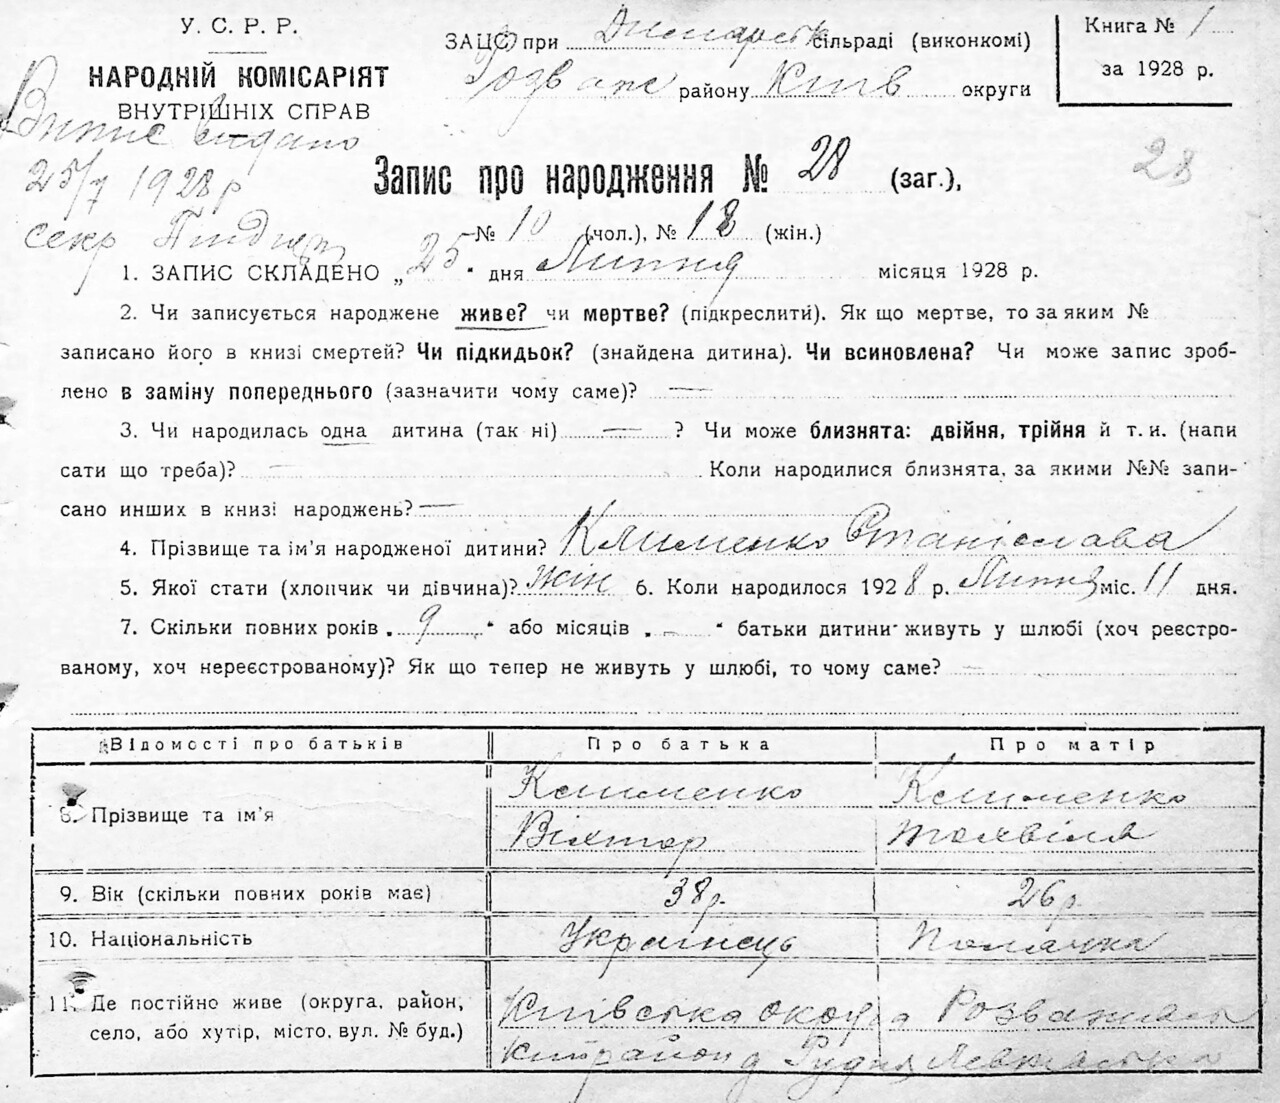 У. С. Р. Р.
НАРОДНІЙ КОМІСАРІЯТ
ВНУТРІШНІХ СПРАВ
Випис видано
25/7 1928 р
секр
ЗАЦС при сільраді (виконкомі)
Розваж району Київ округи
Книга № 1
за 1928 р.
28
Запис про народження № 28 (заг.),
№ 10 (чол.), № 18 (жін.)
1. ЗАПИС СКЛАДЕНО „ 25 “ дня Липня місяця 1928 р.
2. Чи записується народжене живе? чи мертве? (підкреслити). Як що мертве, то за яким №
записано його в книзі смертей? Чи підкидьок? (знайдена дитина). Чи всиновлена? Чи може запис зроб-
лено в заміну попереднього (зазначити чому саме)? —
3. Чи народилась одна дитина (так ні) — ? Чи може близнята: двійня, трійня й т. и. (напи
сати що треба)? — Коли народилися близнята, за якими №№ запи-
сано инших в книзі народжень? —
4. Прізвище та ім'я народженої дитини? Клименко Станіслава
5. Якої стати (хлопчик чи дівчина)? жін 6. Коли народилося 1928 р. Липня міс. 11 дня.
7. Скільки повних років „ 9 “ або місяців „ — “ батьки дитини живуть у шлюбі (хоч реєстро-
ваному, хоч нереєстрованому)? Як що тепер не живуть у шлюбі, то чому саме? —
Відомості про батьків Про батька Про матір
8. Прізвище та ім'я
Клименко Клименко
Віктор
9. Вік (скільки повних років має) 38 р. 26 р.
10. Національність Українець Полячка
11. Де постійно живе (округа, район,
село, або хутір, місто, вул. № буд.)
Київська округа Розважівсь
кий район Рудня